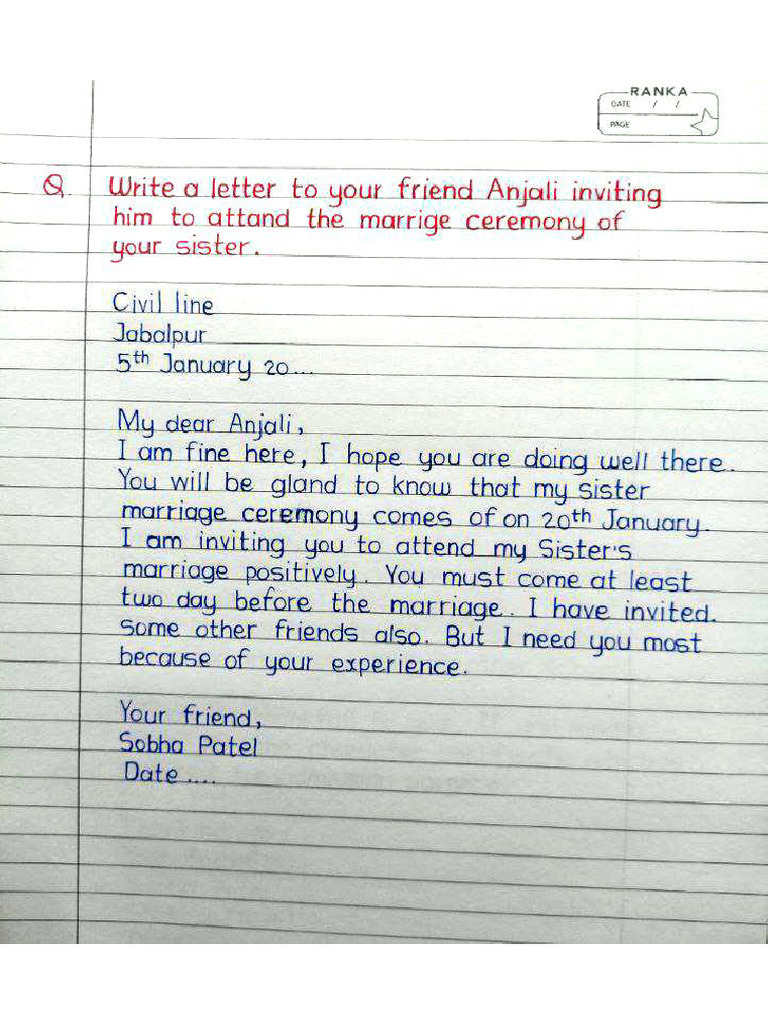 RANKA
DATE / /
PAGE
Q. Write a letter to your friend Anjali inviting
him to attand the marrige ceremony of
your sister.
Civil line
Jabalpur
5th January 20...
My dear Anjali,
I am fine here, I hope you are doing well there.
You will be gland to know that my sister
marriage ceremony comes of on 20th January.
I am inviting you to attend my Sister's
marriage positively. You must come at least
two day before the marriage. I have invited.
some other friends also. But I need you most
because of your experience.
Your friend,
Sobha Patel
Date ....